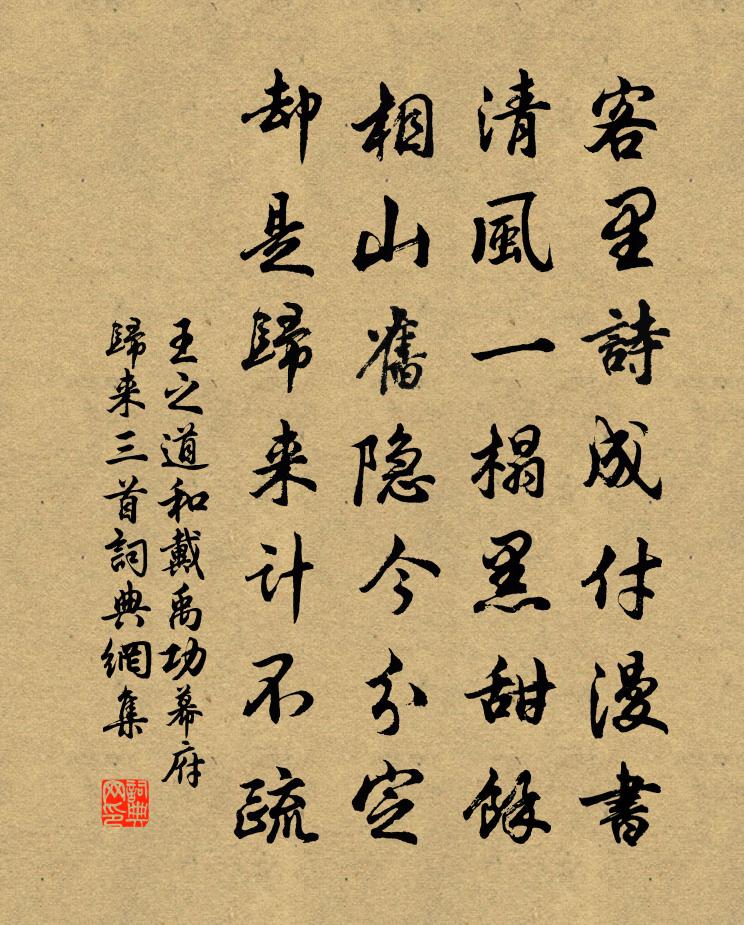 客里詩成付漫書
清風一榻黑甜餘
相山舊隐今分定
却是歸来计不疏
王之道和戴禹功幕府
歸来三首詞典網集
詞典网印